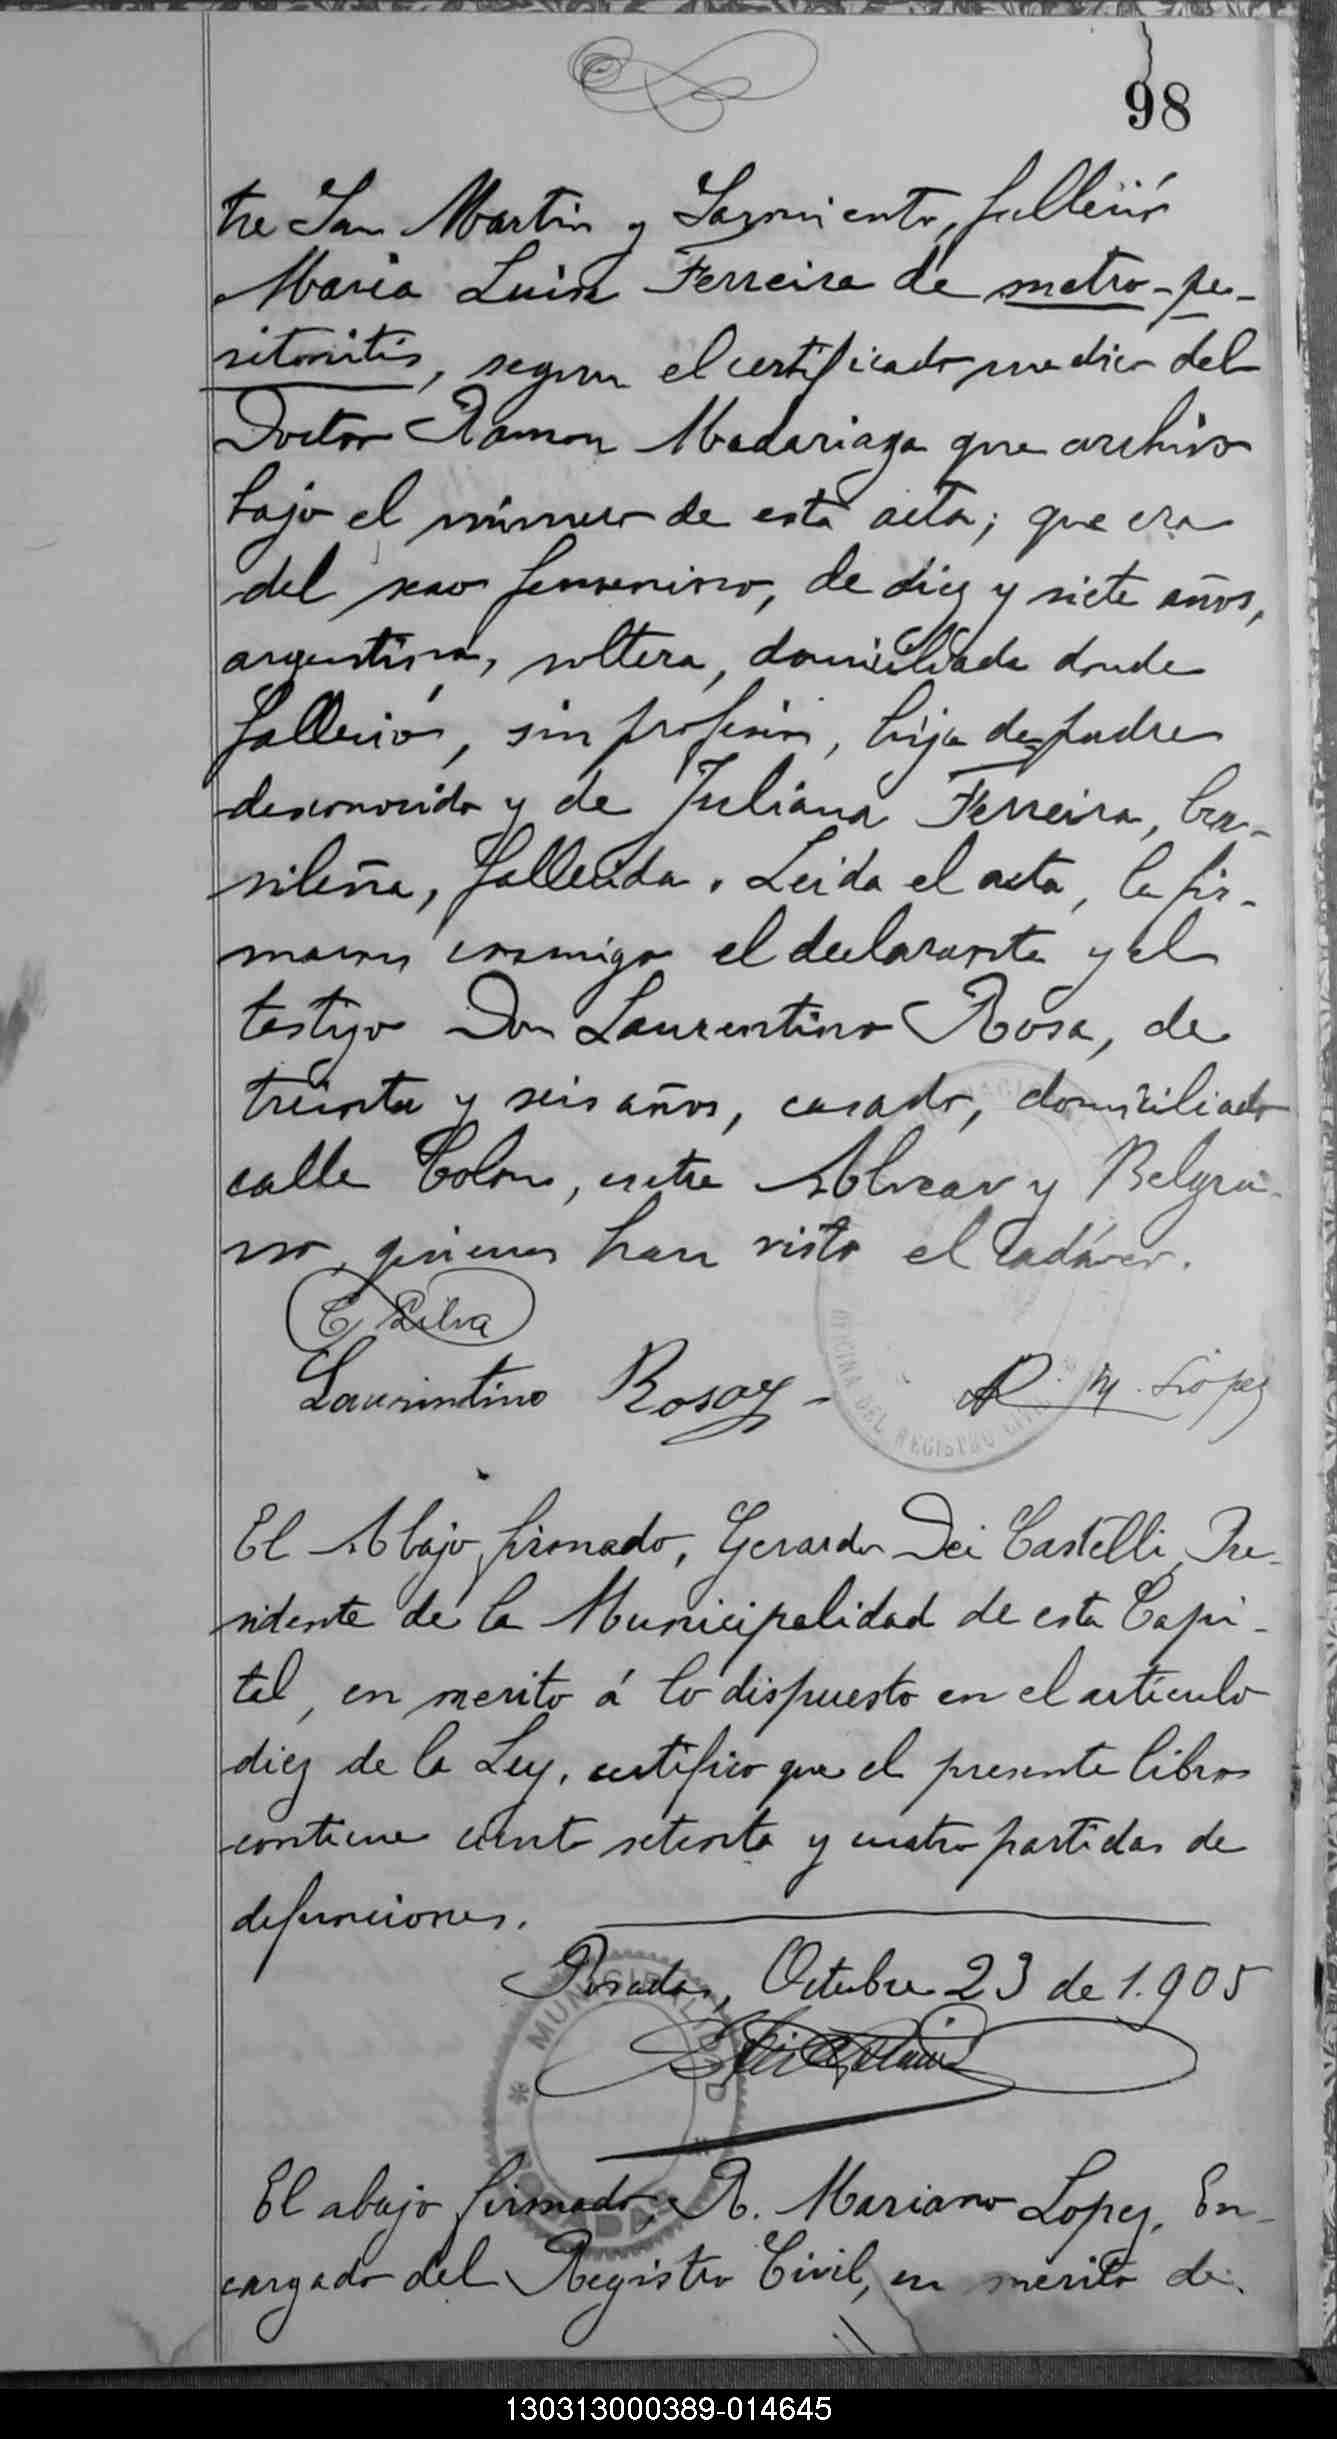 98
tre San Martin y Sarmiento, falleció
Maria Luisa Ferreira de metro-pe-
ritonitis, segun el certificado medico del
Doctor Ramon Madariaga que archivo
bajo el número de esta acta; que era
del sexo femenino, de diez y siete años,
argentina, soltera, domiciliada donde
falleció, sin profesion, hija de padre
desconocido y de Juliana Ferreira, bra-
sileña, fallecida. Leida el acta, la fir-
maron conmigo el declarante y el
testigo Don Laurentino Rosa, de
treinta y seis años, casado, domiciliado
calle Colon, entre Alvear y Belgra-
no, quienes han visto el cadáver.
C Silva
Laurintino Rosa R. M. Lopez
OFICINA DEL REGISTRO CIVIL
El Abajo firmado, Gerardo Dei Castelli, Pre-
sidente de la Municipalidad de esta Capi-
tal, en merito á lo dispuesto en el articulo
diez de la Ley, certifico que el presente libro
contiene ciento setenta y cuatro partidas de
defunciones.
Posadas, Octubre 23 de 1.905
MUNICIPALIDAD
POSADAS
El abajo firmado, R. Mariano Lopez, En-
cargado del Registro Civil, en merito de
130313000389-014645